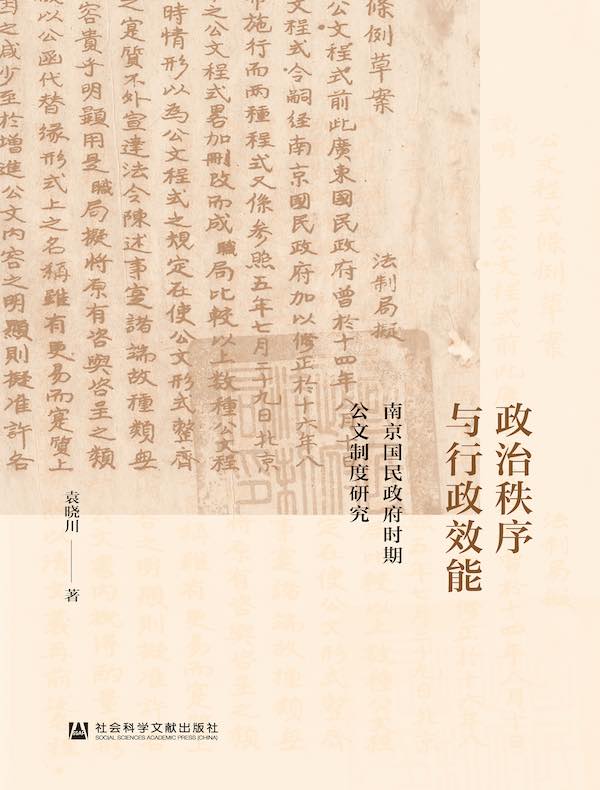 條例草案
法制局擬
公文程式前此廣東國民政府曾於十四年
文程式令嗣經南京國民政府加以修正於十六年八
布施行而兩種程式又係參照五年七月二十九日北京
之公文程式畧加刪改而成職局比較以上數種公文程
時情形以為公文程式之規定在使公文形式整齊
之寔質不外宣達法令陳述事寔諸端故種類毋
容貴乎明顯用是職局擬將原有咨與咨呈之類
或以公函代替緣形式上之名稱雖有更易而寔質上
因之咸少至於增進公文內容之明顯則擬准許各
政治秩序
与行政效能
南京国民政府时期
公文制度研究
袁晓川 —— 著
社会科学文献出版社
SOCIAL SCIENCES ACADEMIC PRESS (CHINA)